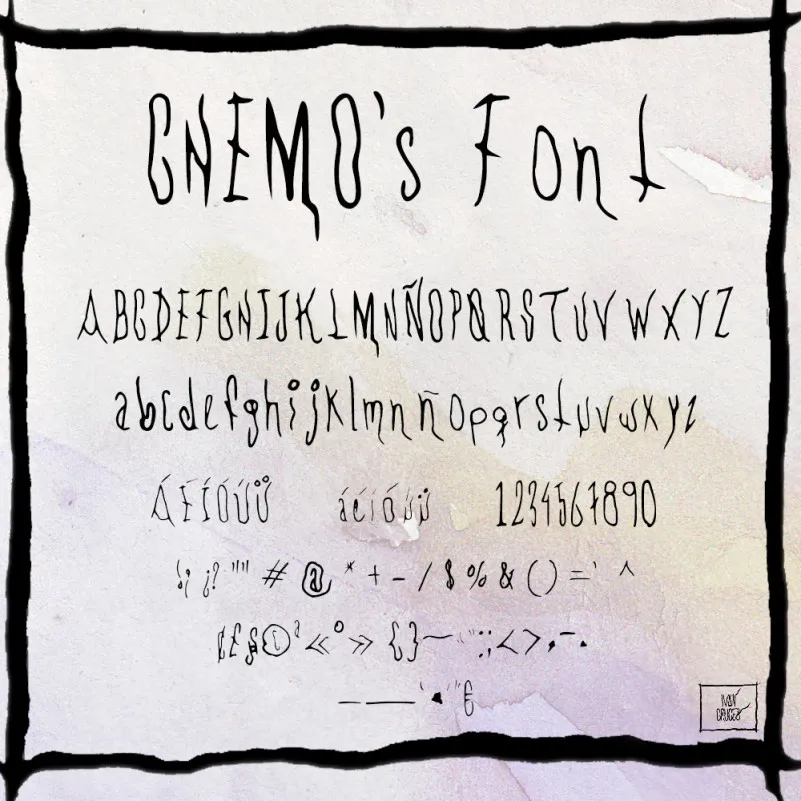 GNEMO's Font
ABCDEFGHIJKLMNÑOPQRSTUVWXYZ
abcdefghijklmnñopqrstuvwxyz
ÁÉÍÓÚÜ áéíóúü 1234567890
¡! ¿? "" # @ * + - / $ % & () =' ^
¢£§©ª«º» {}~ ¨:;<>,¯-.
–— ‘ • ’ “ €
IVÁN
CRUCES